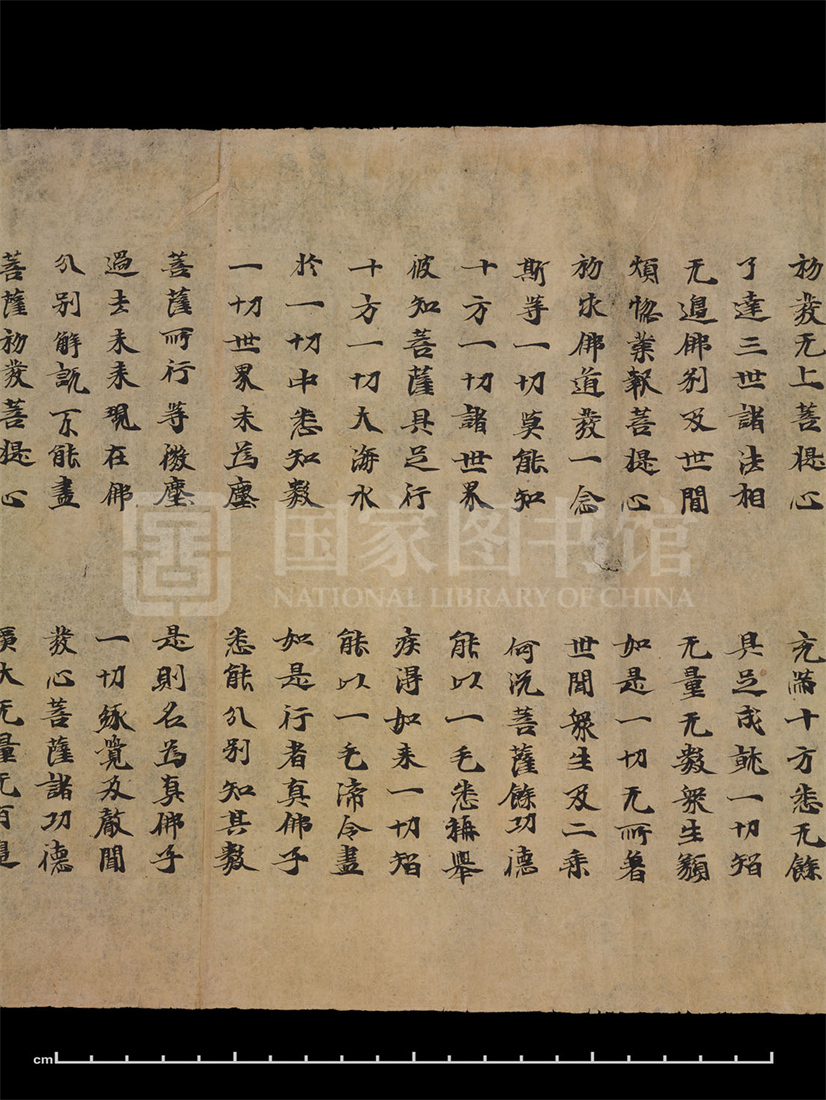 初發无上菩提心 充滿十方悉无餘
了達三世諸法相 具足成就一切智
无邊佛刹及世間 无量无數衆生類
煩惱業報菩提心 如是一切无所著
初求佛道發一念 世間衆生及二乘
斯等一切莫能知 何況菩薩餘功德
十方一切諸世界 能以一毛悉稱舉
彼知菩薩具足行 疾得如来一切智
十方一切大海水 能以一毛渧令盡
於一切中悉知數 如是行者真佛子
一切世界末為塵 悉能分別知其數
菩薩所行等微塵 是則名為真佛子
過去未来現在佛 一切緣覺及聲聞
分別解說不能盡 發心菩薩諸功德
菩薩初發菩提心 廣大无量无有邊
国家图书馆
NATIONAL LIBRARY OF CHINA
cm